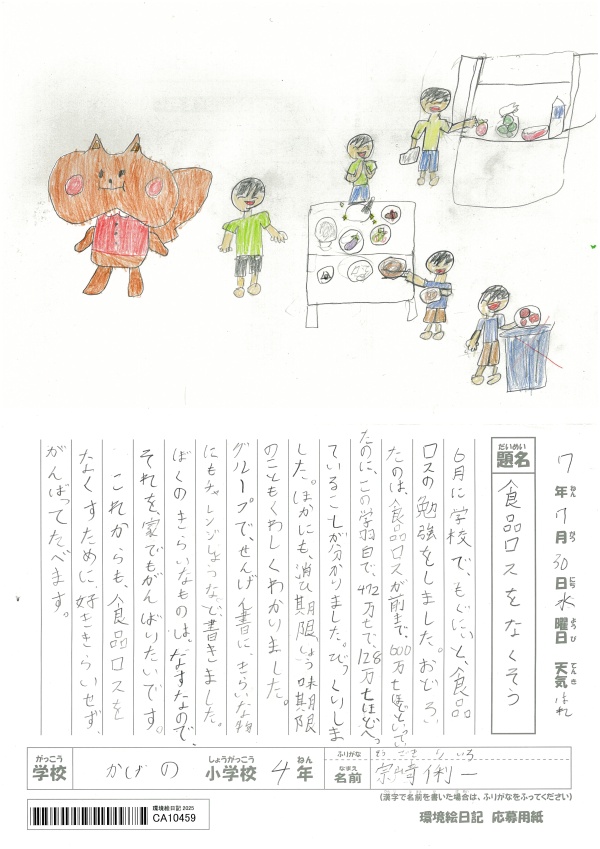 7年7月30日水曜日 天気 はれ
ねん がつ にち よう び てん き
だいめい
題名 食品ロスをなくそう
6月に学校で、もぐにいと、食品
ロスの勉強をしました。おどろい
たのは、食品ロスが前まで、600万tほどといって
たのに、この学習日で、472万tで、128万tほどへっ
ていることが分かりました。びっくりしま
した。ほかにも、消ひ期限、しょう味期限
のこともくわしくわかりました。
グループで、せんげん書に、きらいな物
にもチャレンジしようなど書きました。
ぼくのきらいなものは、なすなので、
それを、家でもがんばりたいです。
これからも、食品ロスを
なくすために、好ききらいせず、
がんばってたべます。
がっこう しょうがっこう ねん
学校 かげの 小学校 4年
ふりがな
なまえ
名前 宗崎 俐一
(漢字で名前を書いた場合は、ふりがなをふってください)
環境絵日記 2025
CA10459
環境絵日記 応募用紙